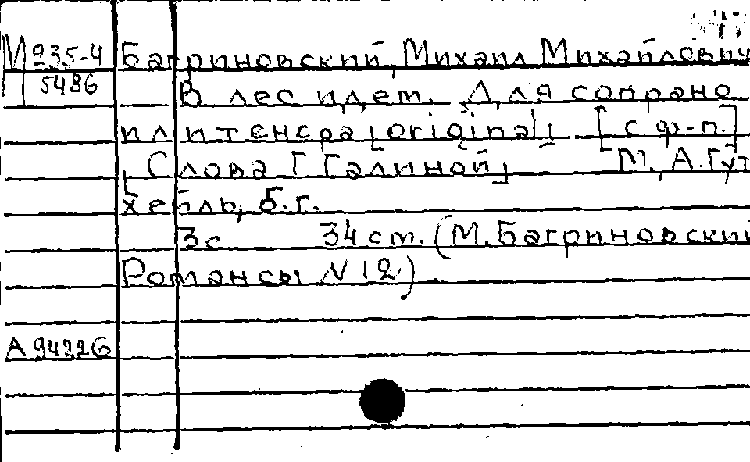 М 235-4
5486
Багриновский, Михаил Михайлович
В лес идет. Для сопрано
или тенора [original] [с ф-п.]
[Слова Г Галиной] М., А. Гут
хейль, б.г.
3с 34 см. (М. Багриновский
Романсы N 12.)
А 94226